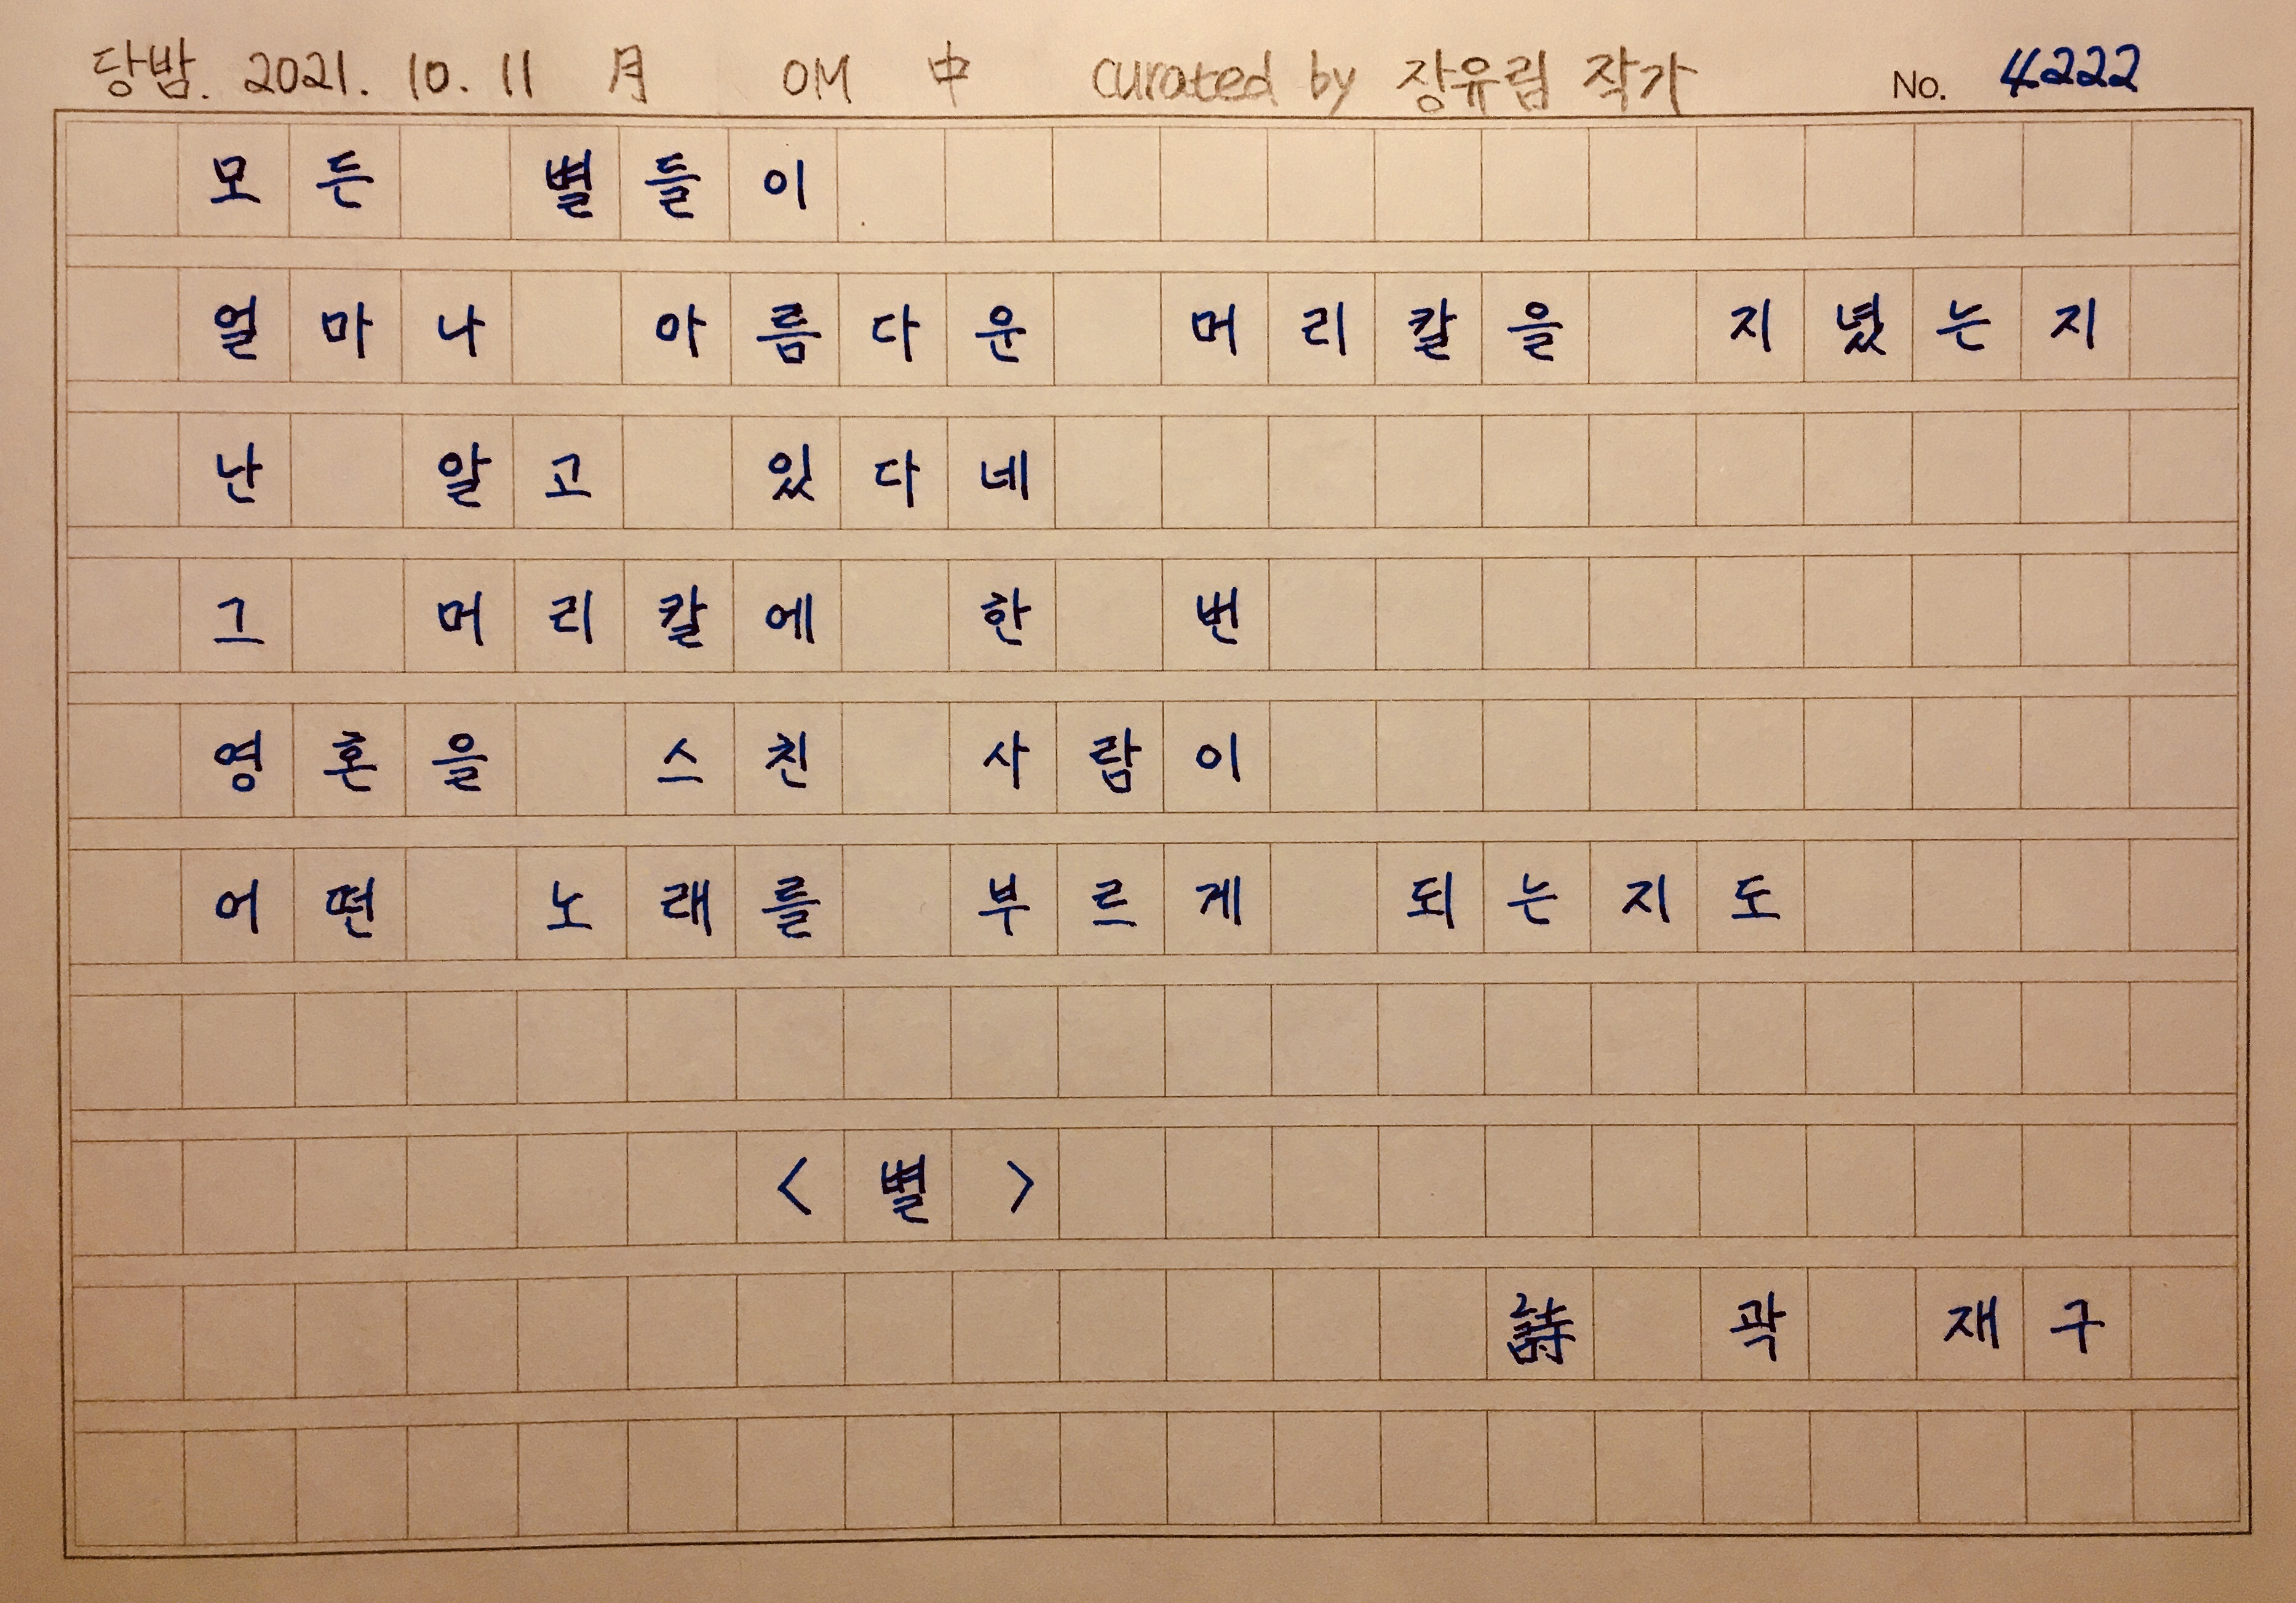 당밤. 2021. 10. 11 月 OM 中 curated by 장유림 작가 No. 4222
모든 별들이
얼마나 아름다운 머리칼을 지녔는지
난 알고 있다네
그 머리칼에 한 번
영혼을 스친 사람이
어떤 노래를 부르게 되는지도
<별>
詩 곽 재구